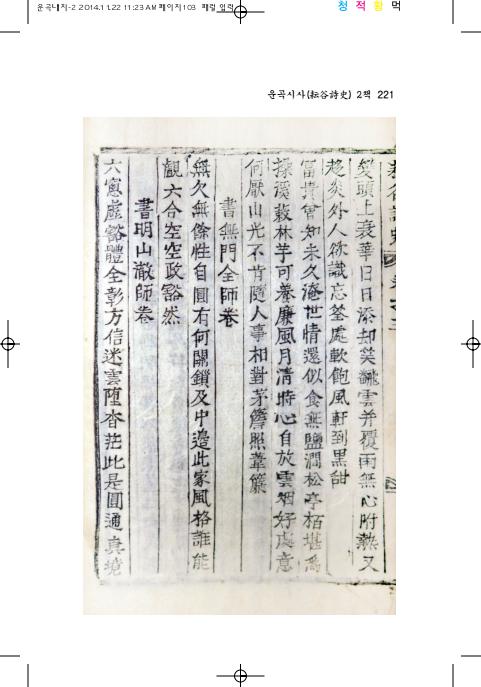 운곡내지-2 2014.11.22 11:23 AM 페이지103 패럴 입력
청 적 황 먹
운곡시사(耘谷詩史) 2책 221
鬂頭上衰華旧日添却笑飜雲并覆雨無心附熱又
趍炎外人欲識忘筌處軟飽風軒到黒甜
富貴曾知未久淹世情還似食無鹽澗松亭栢堪爲
操溪蔌林芋可養廉風月清時心自放雲烟好處意
何厭山光不肯隨人事相對茅簷照葦簾
書無門全師卷
無欠無餘性自圓有何關鎖及中邉此家風格誰能
覩六合空空政豁然
書明山澈師卷
六窓虛豁體全彰方信迷雲墮杳茫此是圓通真境